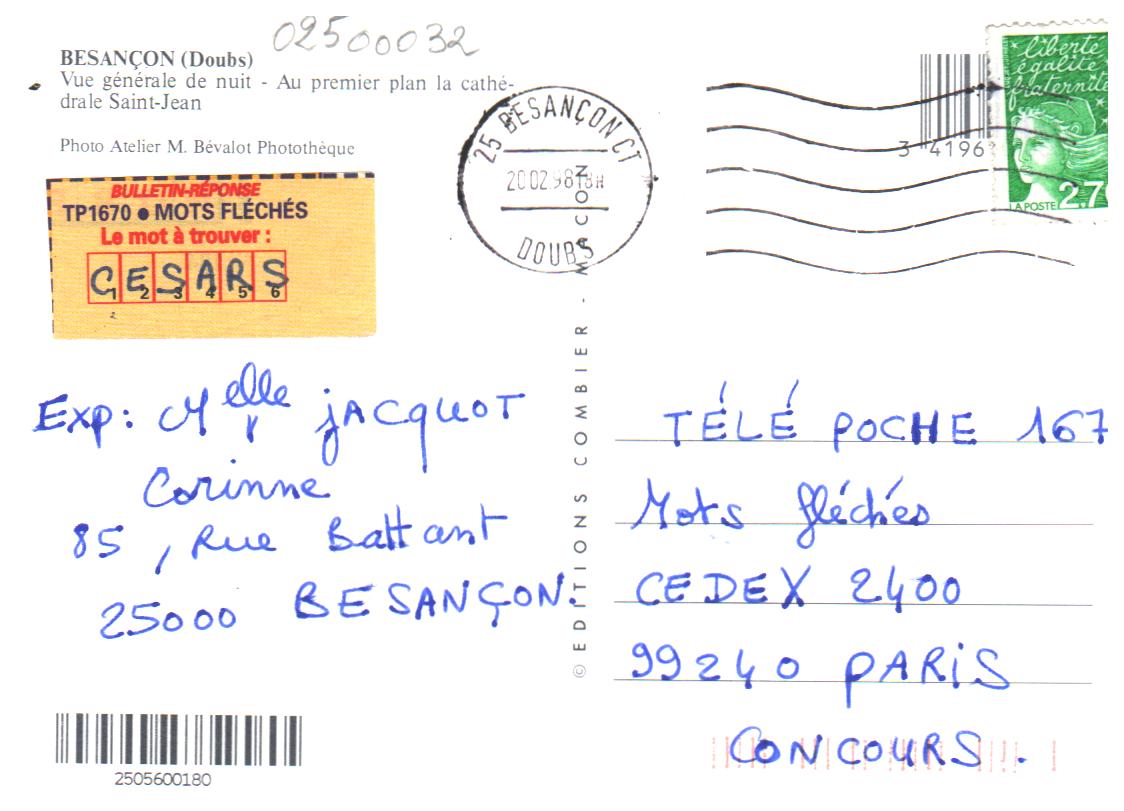 02500032
BESANÇON (Doubs)
Vue générale de nuit - Au premier plan la cathé-
drale Saint-Jean
Photo Atelier M. Bévalot Photothèque
BULLETIN-RÉPONSE
TP1670 ● MOTS FLÉCHÉS
Le mot à trouver :
CESARS
1 2 3 4 5 6
25 BESANÇON CT
20 02 98 18H
DOUBS
3 4196
liberté
égalité
fraternité
LA POSTE 2,7
© EDITIONS COMBIER - MACON
Exp: Melle jACQUOT
Corinne
85, Rue Battant
25000 BESANÇON.
TÉLÉ POCHE 167
Mots fléchés
CEDEX 2400
99240 PARiS
CONCOURS.
2505600180